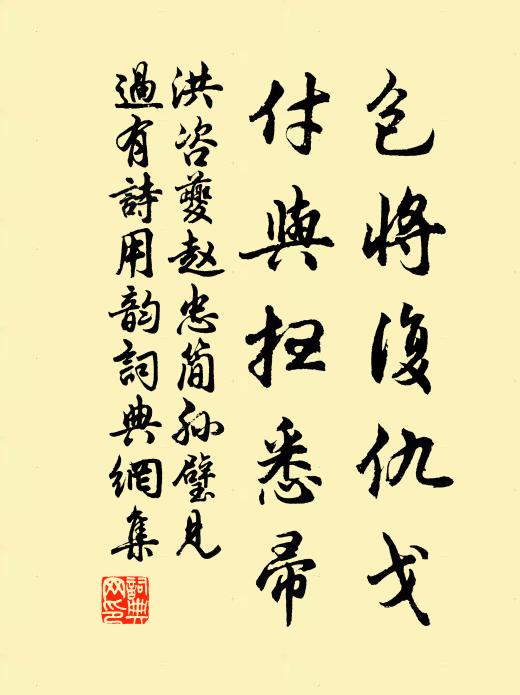 包將復仇戈
付與扭悉帚
洪咨夔赵忠简孙璧見
過有詩用韵詞典網集
詞典网印